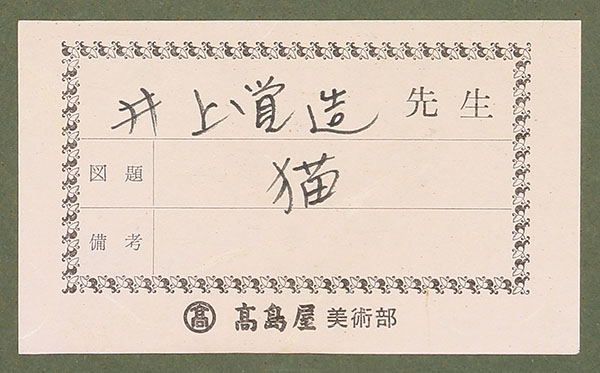 井上覚造 先生
図題 猫
備考
髙 髙島屋 美術部